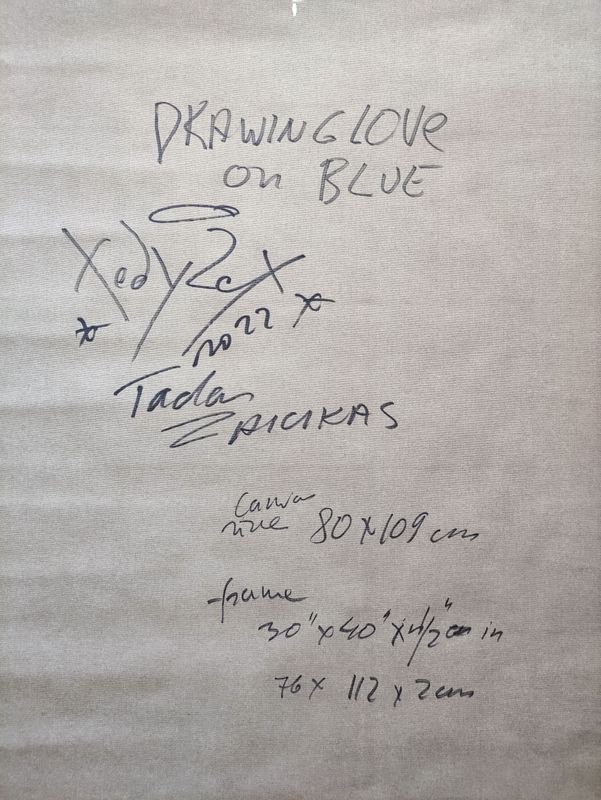 DRAWING LOVE
on BLUE
XodyZeX
2022
Tadas
ZAICIKAS
canva
size 80 x 109 cm
frame
30" x 40" x 1/2" in
76 x 112 x 2 cm